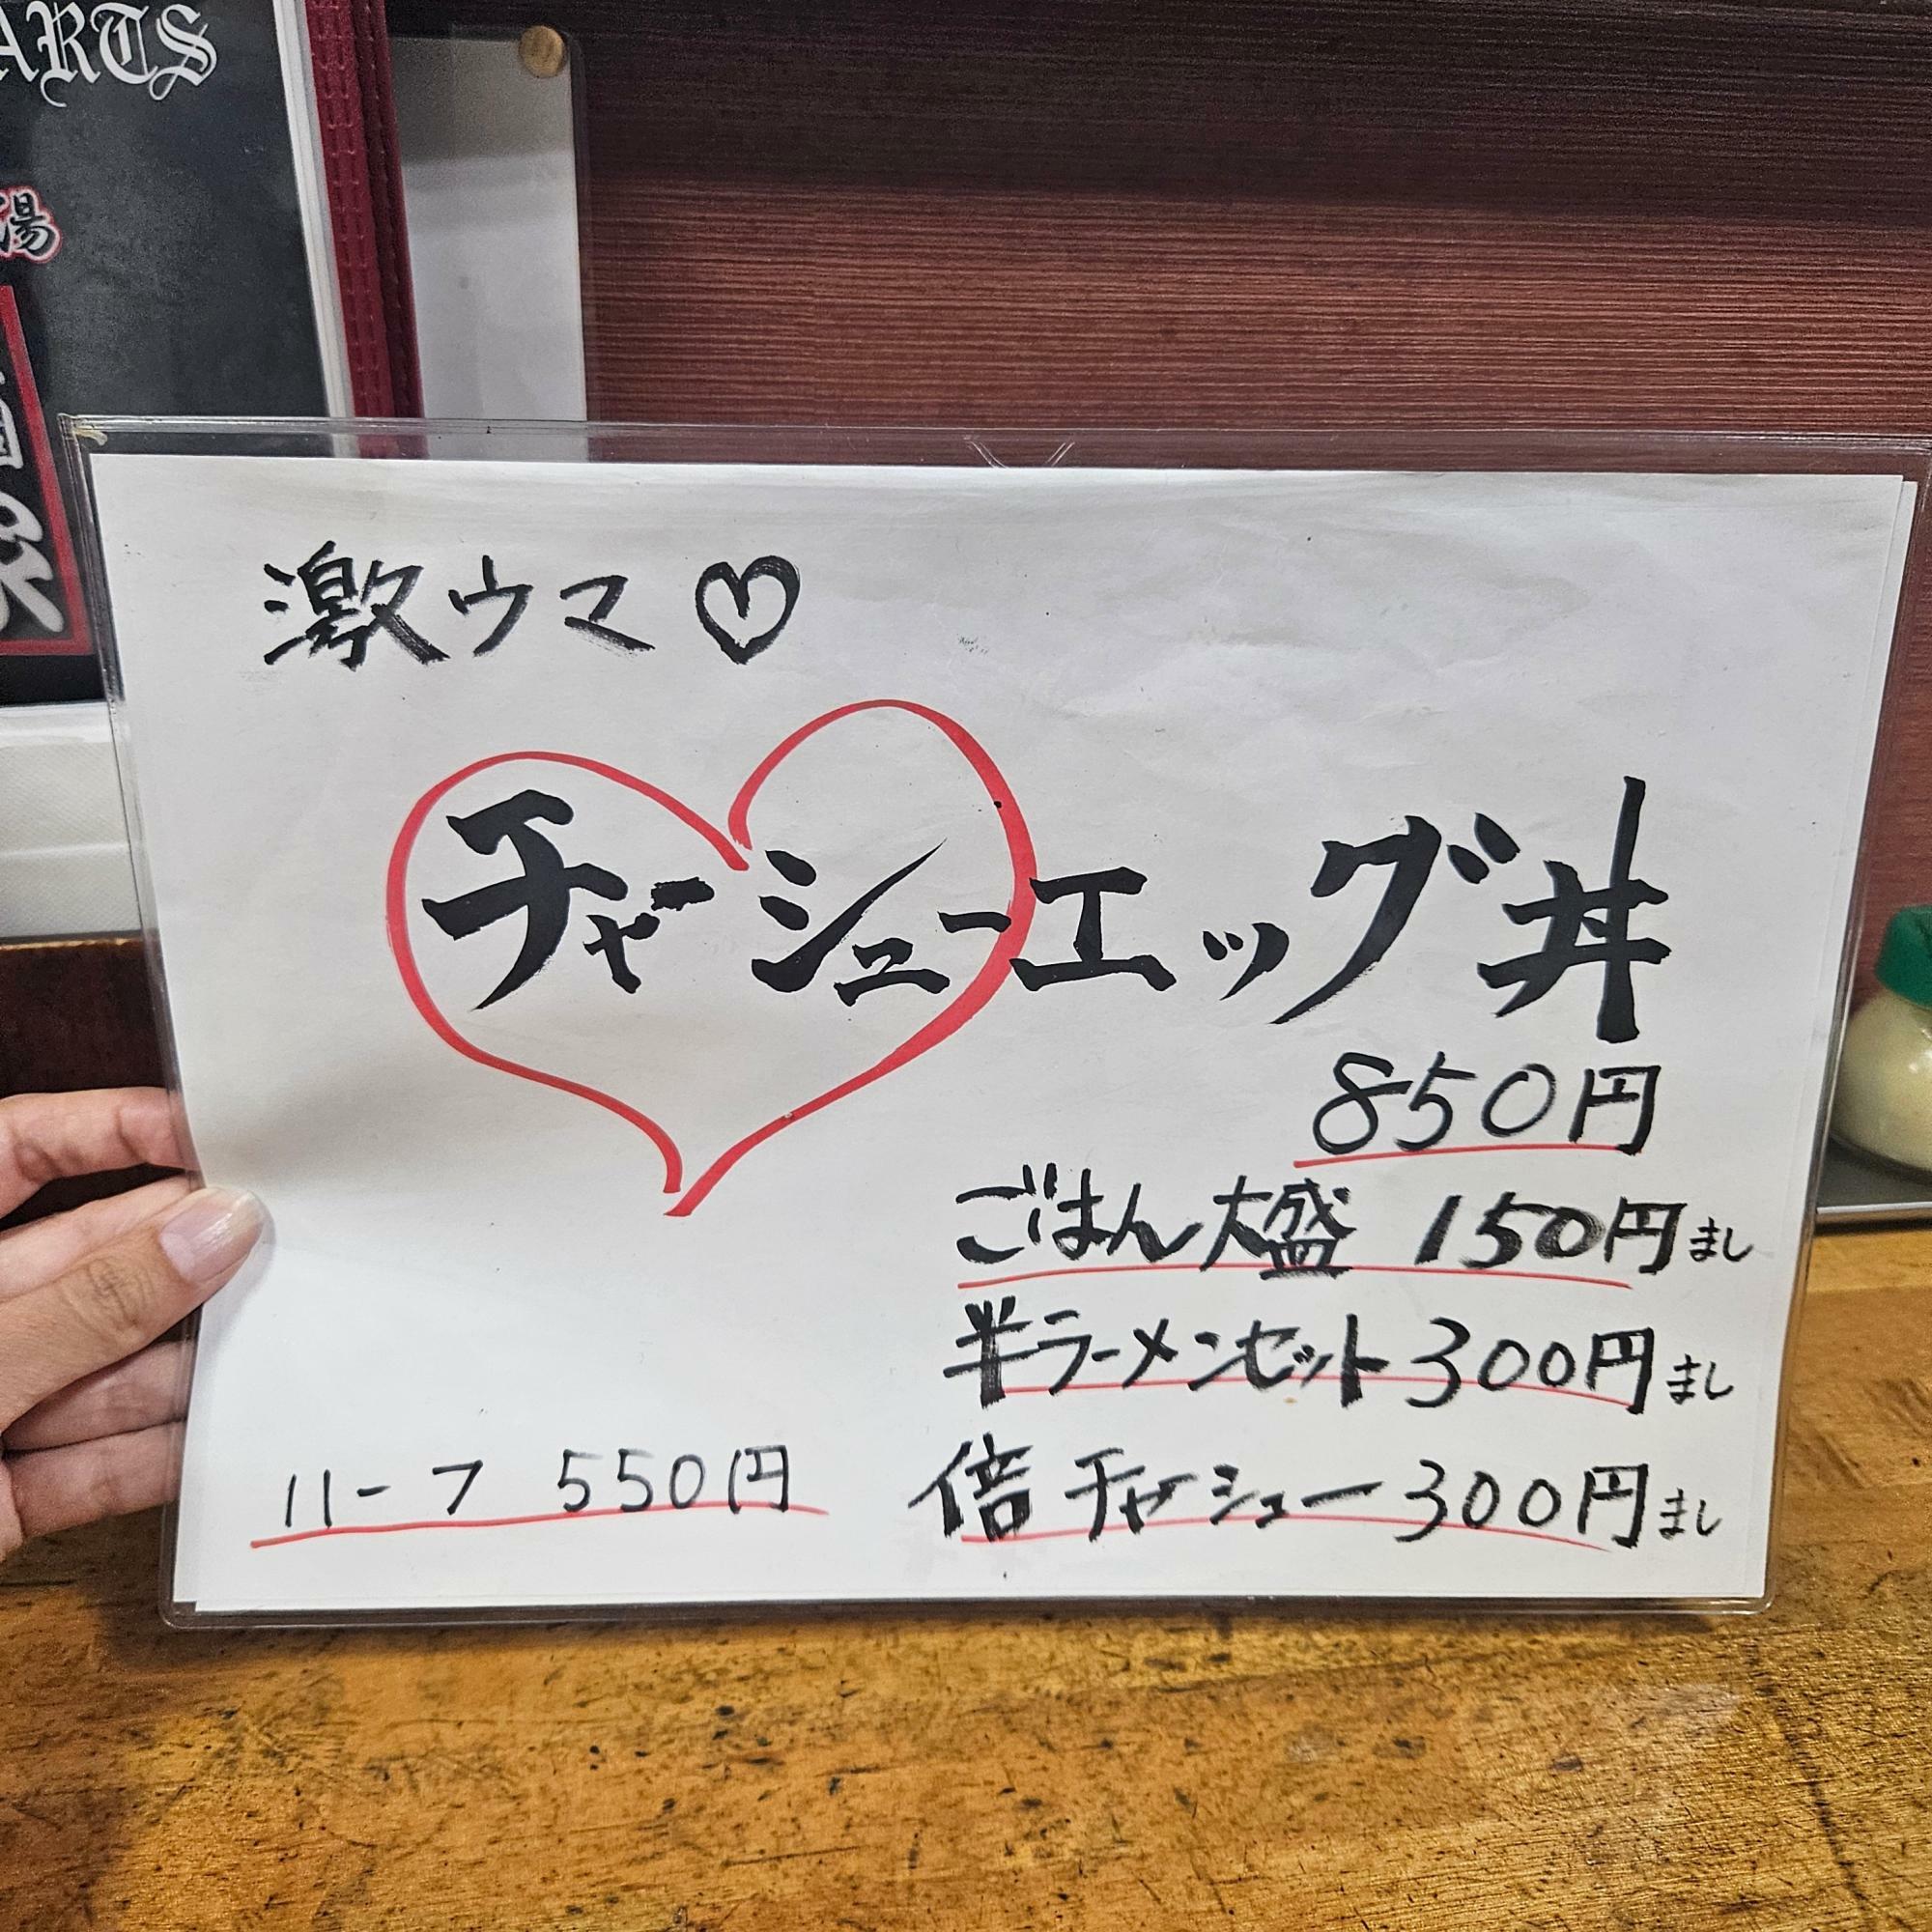 ARTS
湯
激ウマ♡
チャーシューエッグ丼
850円
ごはん大盛 150円まし
半ラーメンセット 300円まし
ハーフ 550円
倍チャーシュー 300円まし